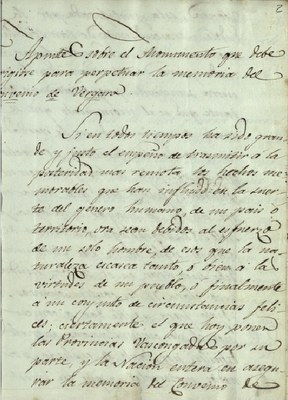 2
Apuntes sobre el Monumento que debe
erigirse para perpetuar la memoria del
Convenio de Vergara
Si en todos tiempos ha sido gran-
de y justo el empeño de trasmitir á la
posteridad mas remota los hechos me-
morables que han influido en la suer-
te del género humano, de un pais ó
territorio, ora sean debidos al esfuerzo
de un solo hombre, de esos que la na-
turaleza escasea tanto, ó bien á las
virtudes de un pueblo, ó finalmente
á un conjunto de circunstancias feli-
ces; ciertamente el que hoy ponen
las Provincias Vascongadas por su
parte, y la Nacion entera en asegu-
rar la memoria del Convenio de